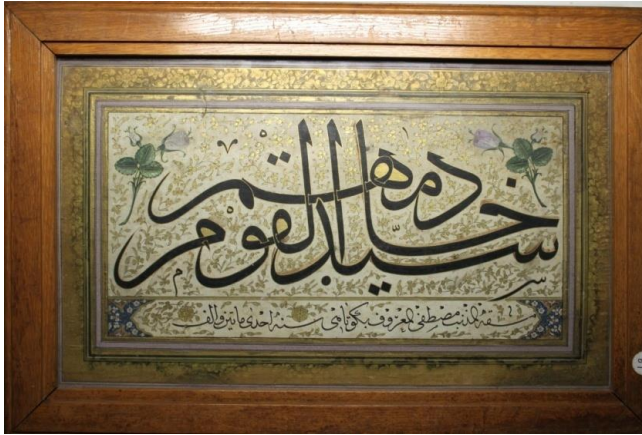 سيد القوم خادمهم
نمقه المذنب مصطفى المعروف بكوتاهى سنه احدى مائتين والف